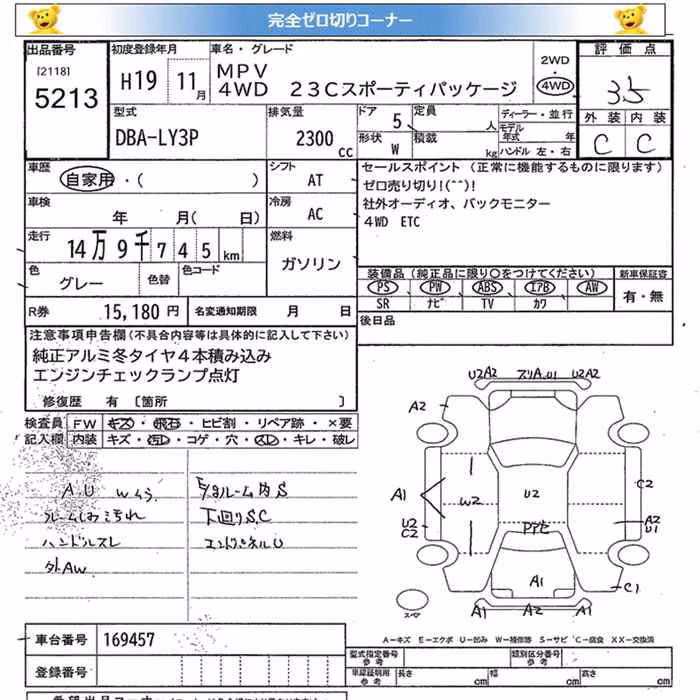 完全ゼロ切りコーナー
出品番号 初度登録年月 車名・グレード 2WD・4WD 評価点
[2118] 5213 H19 11月 MPV
4WD 23Cスポーティパッケージ 3.5
型式 排気量 ドア 5 定員 人 ディーラー・並行 外装 内装
DBA-LY3P 2300 CC 形状 W 積載 kg モデル年式 年 ハンドル 左・右 C C
車歴 自家用・( ) シフト AT セールスポイント (正常に機能するものに限ります)
ゼロ売り切り!(^^)!
車検 年 月( 日) 冷房 AC 社外オーディオ、バックモニター
4WD ETC
走行 14万9千745km 燃料 ガソリン
色 グレー 色替 色コード 装備品(純正品に限り○をつけてください) 新車保証書
PS PW ABS エアB AW 有・無
SR ナビ TV カワ
R券 15,180円 名変通知期限 月 日 後日品
注意事項申告欄(不具合内容等は具体的に記入して下さい)
純正アルミ冬タイヤ4本積み込み
エンジンチェックランプ点灯
修復歴 有〔箇所 〕
検査員 FW キズ・飛石・ヒビ割・リペア跡・×要
記入欄 内装 キズ・汚レ・コゲ・穴・スレ・キレ・破レ
A.U Wうら
ルーム内S
下廻りS.C
ハンドルスレ
外AW
U2A2 A1 U2A2
A2
A1 W2 U2 C2
U2 C2 A2 U1
A1 C1
A1 A2 A1
A-キズ E-エクボ U-凹み W-補修跡 S-サビ C-腐食 XX-交換済
車台番号 169457 型式指定番号 参考 類別区分番号 参考
登録番号 車庫証明用 参考 長さ cm 幅 cm 高さ cm